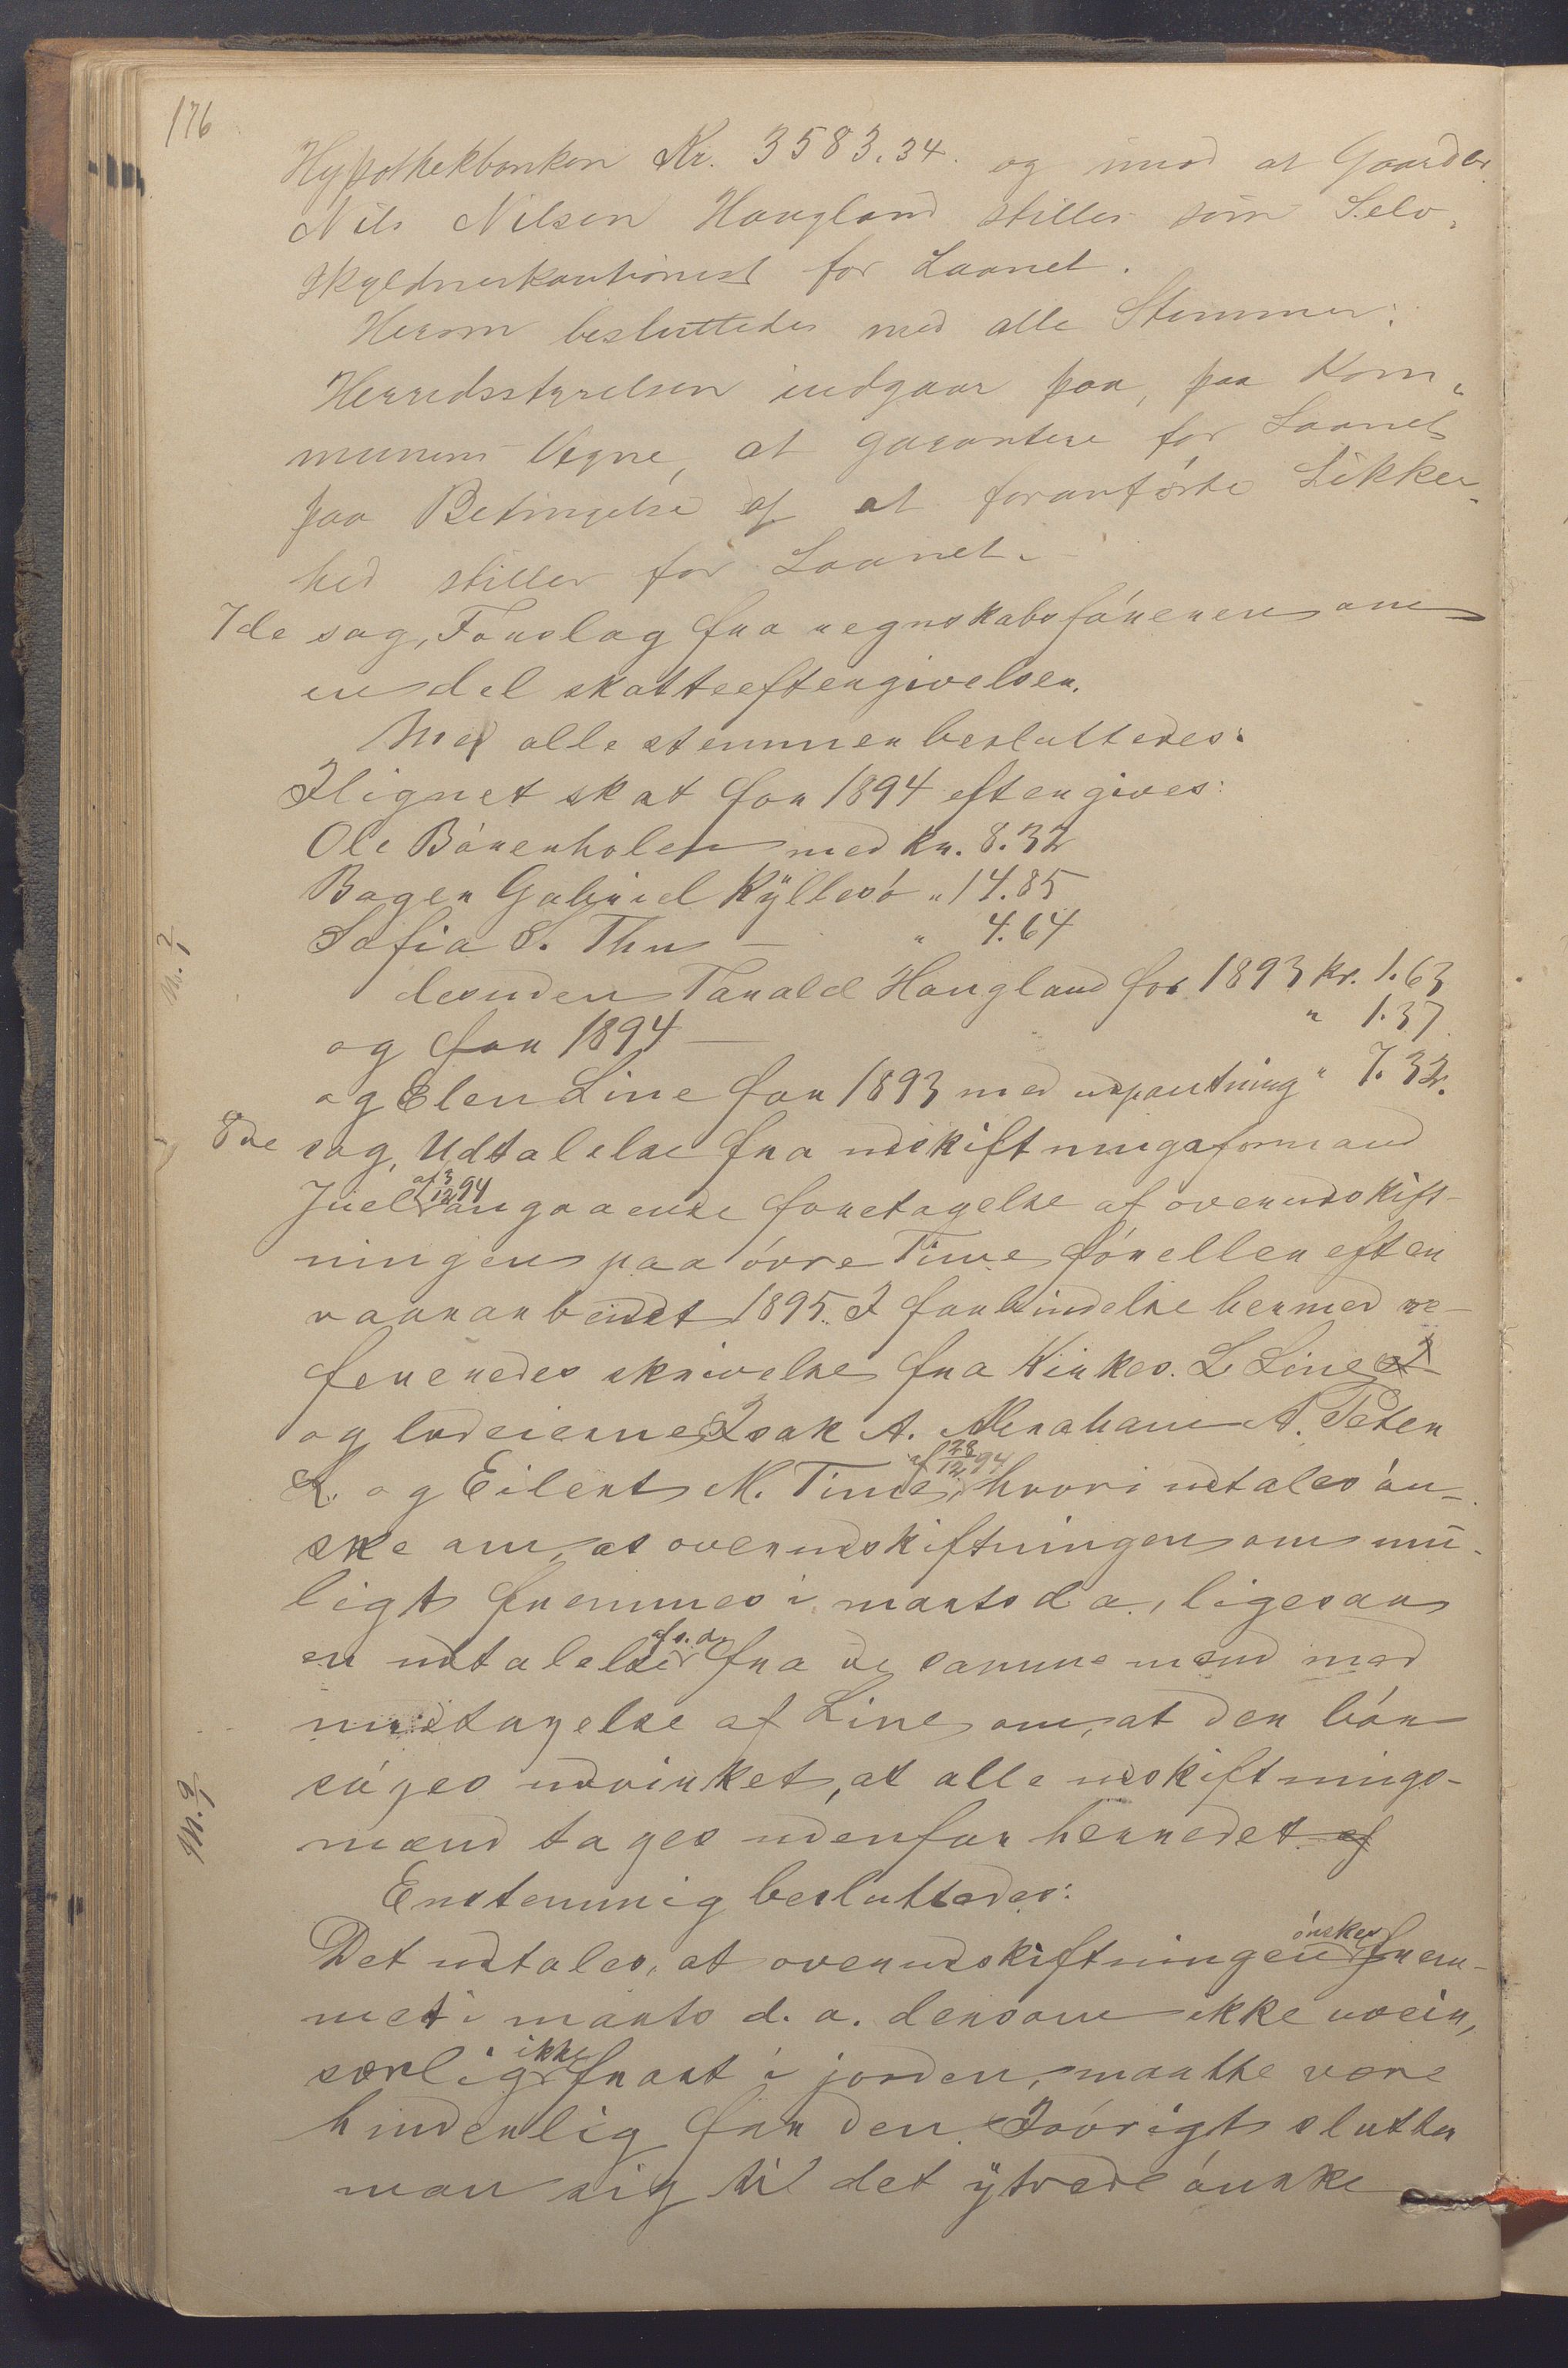 176
Hypothekbanken Kr. 3583.34. og imod at Gaardbr.
Nils Nilsen Haugland stilles som Selv-
skyldnerkautionist for Laanet.
Herom besluttedes med alle Stemmer:
Herredsstyrelsen indgaar paa, paa Kom-
munens Vegne, at garantere for Laanet
paa Betingelse af at foranførte Sikker-
hed stilles for Laanet.
7de sag, Forslag fra regnskabsføreren om
en del skatteeftergivelser.
Med alle stemmer besluttedes:
Ilignet skat for 1894 eftergives:
Ole Børerholen med kr. 8.32
Bager Gabriel Kyllesø " 14.85
Sofia S. Thu — " 4.64
desuden Tarald Haugland for 1893 kr. 1.63
og for 1894 — " 1.37
og Elen Line for 1893 med udpantning " 7.32.
8de sag, Udtalelse fra udskiftningsformand
Juel af 3/12 94 angaaende foretagelse af overudskift-
ningen paa øvre Time før eller efter
vaararbeidet 1895. I forbindelse hermed re-
fereredes skrivelse fra Kirkes. L Line
og lodeierne Isak A. Abraham A. Peder
R. og Eilert M. Time af 28/12 94, hvori udtales øn-
ske om, at overudskiftningen om mu-
ligt fremmes i marts d a., ligesaa
en udtalelse af s. d. fra de samme mænd med
undtagelse af Line om, at der bør
søges udvirket, at alle udskiftnings-
mænd tages udenfor herredet. af
Enstemmig besluttedes:
Det udtales, at overudskiftningen ønskes frem-
met i marts d. a. dersom ikke uveir,
særlig ikke frost i jorden, maatte være
hinderlig for den. Iøvrigt slutter
man sig til det ytrede ønske